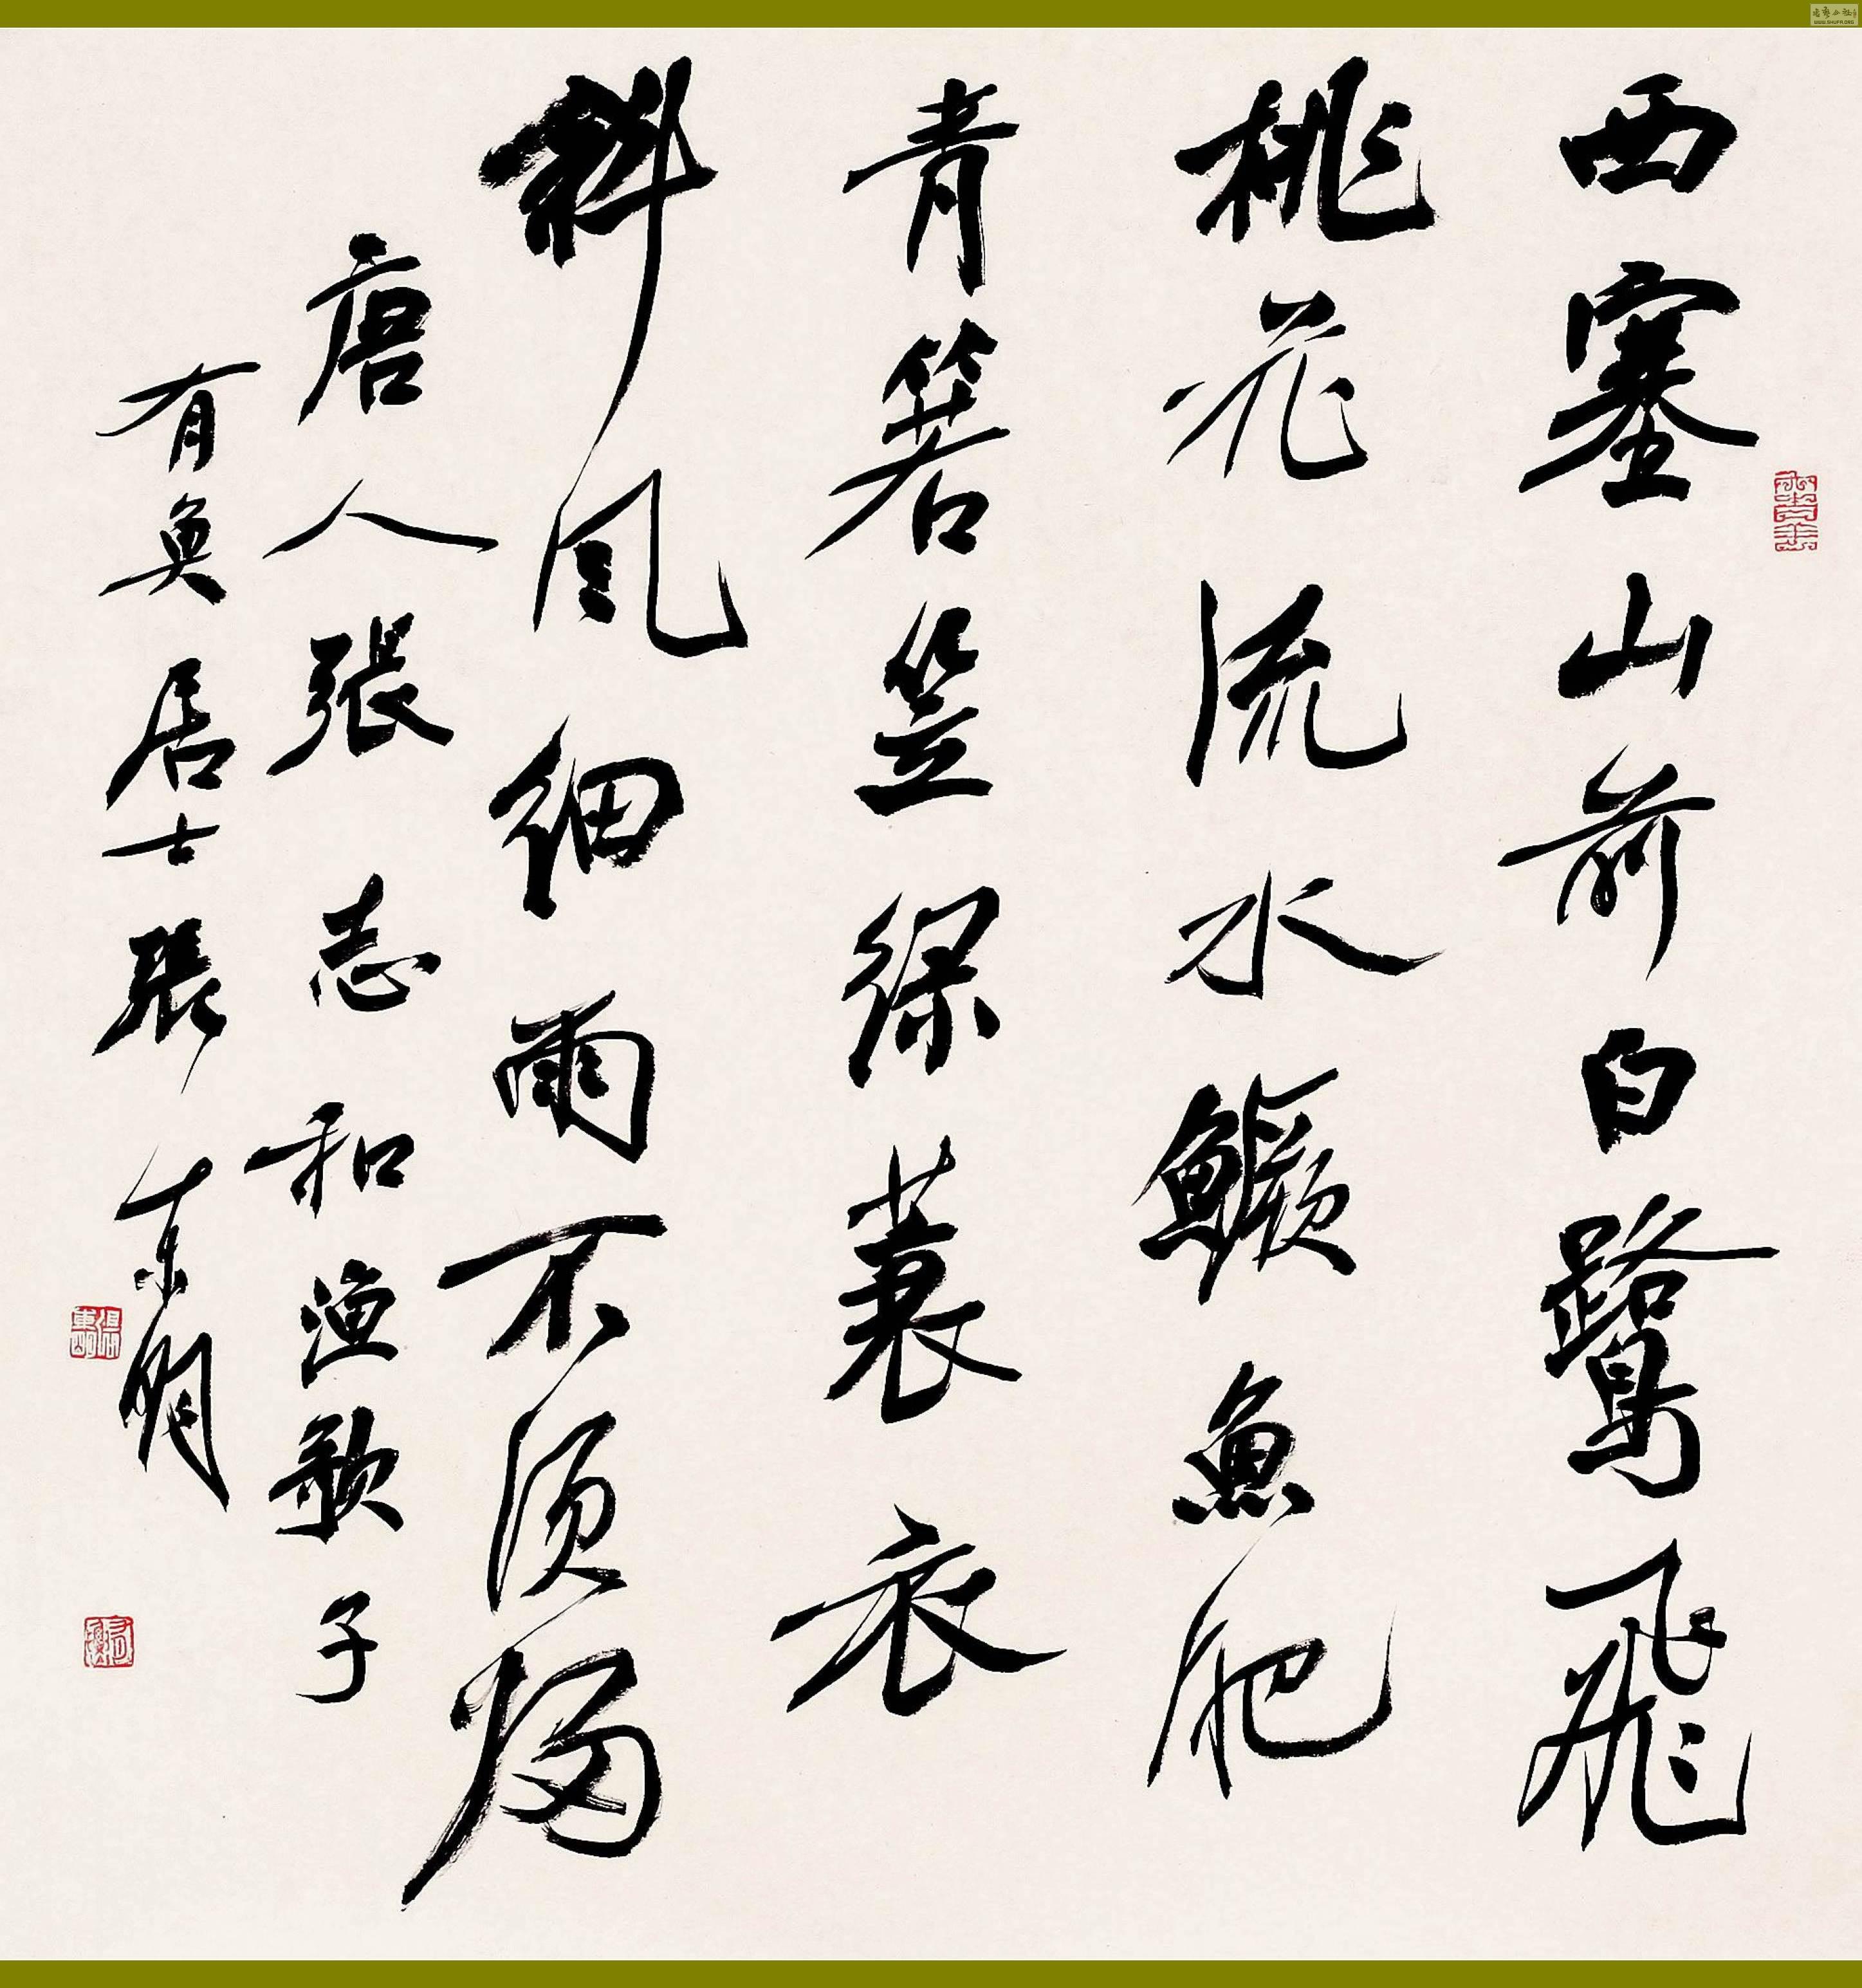 西塞山前白鷺飛
桃花流水鱖魚肥
青箬笠綠蓑衣
斜風細雨不須歸
唐人張志和漁歌子
有魚居士張東明
WWW.SHUFA.ORG